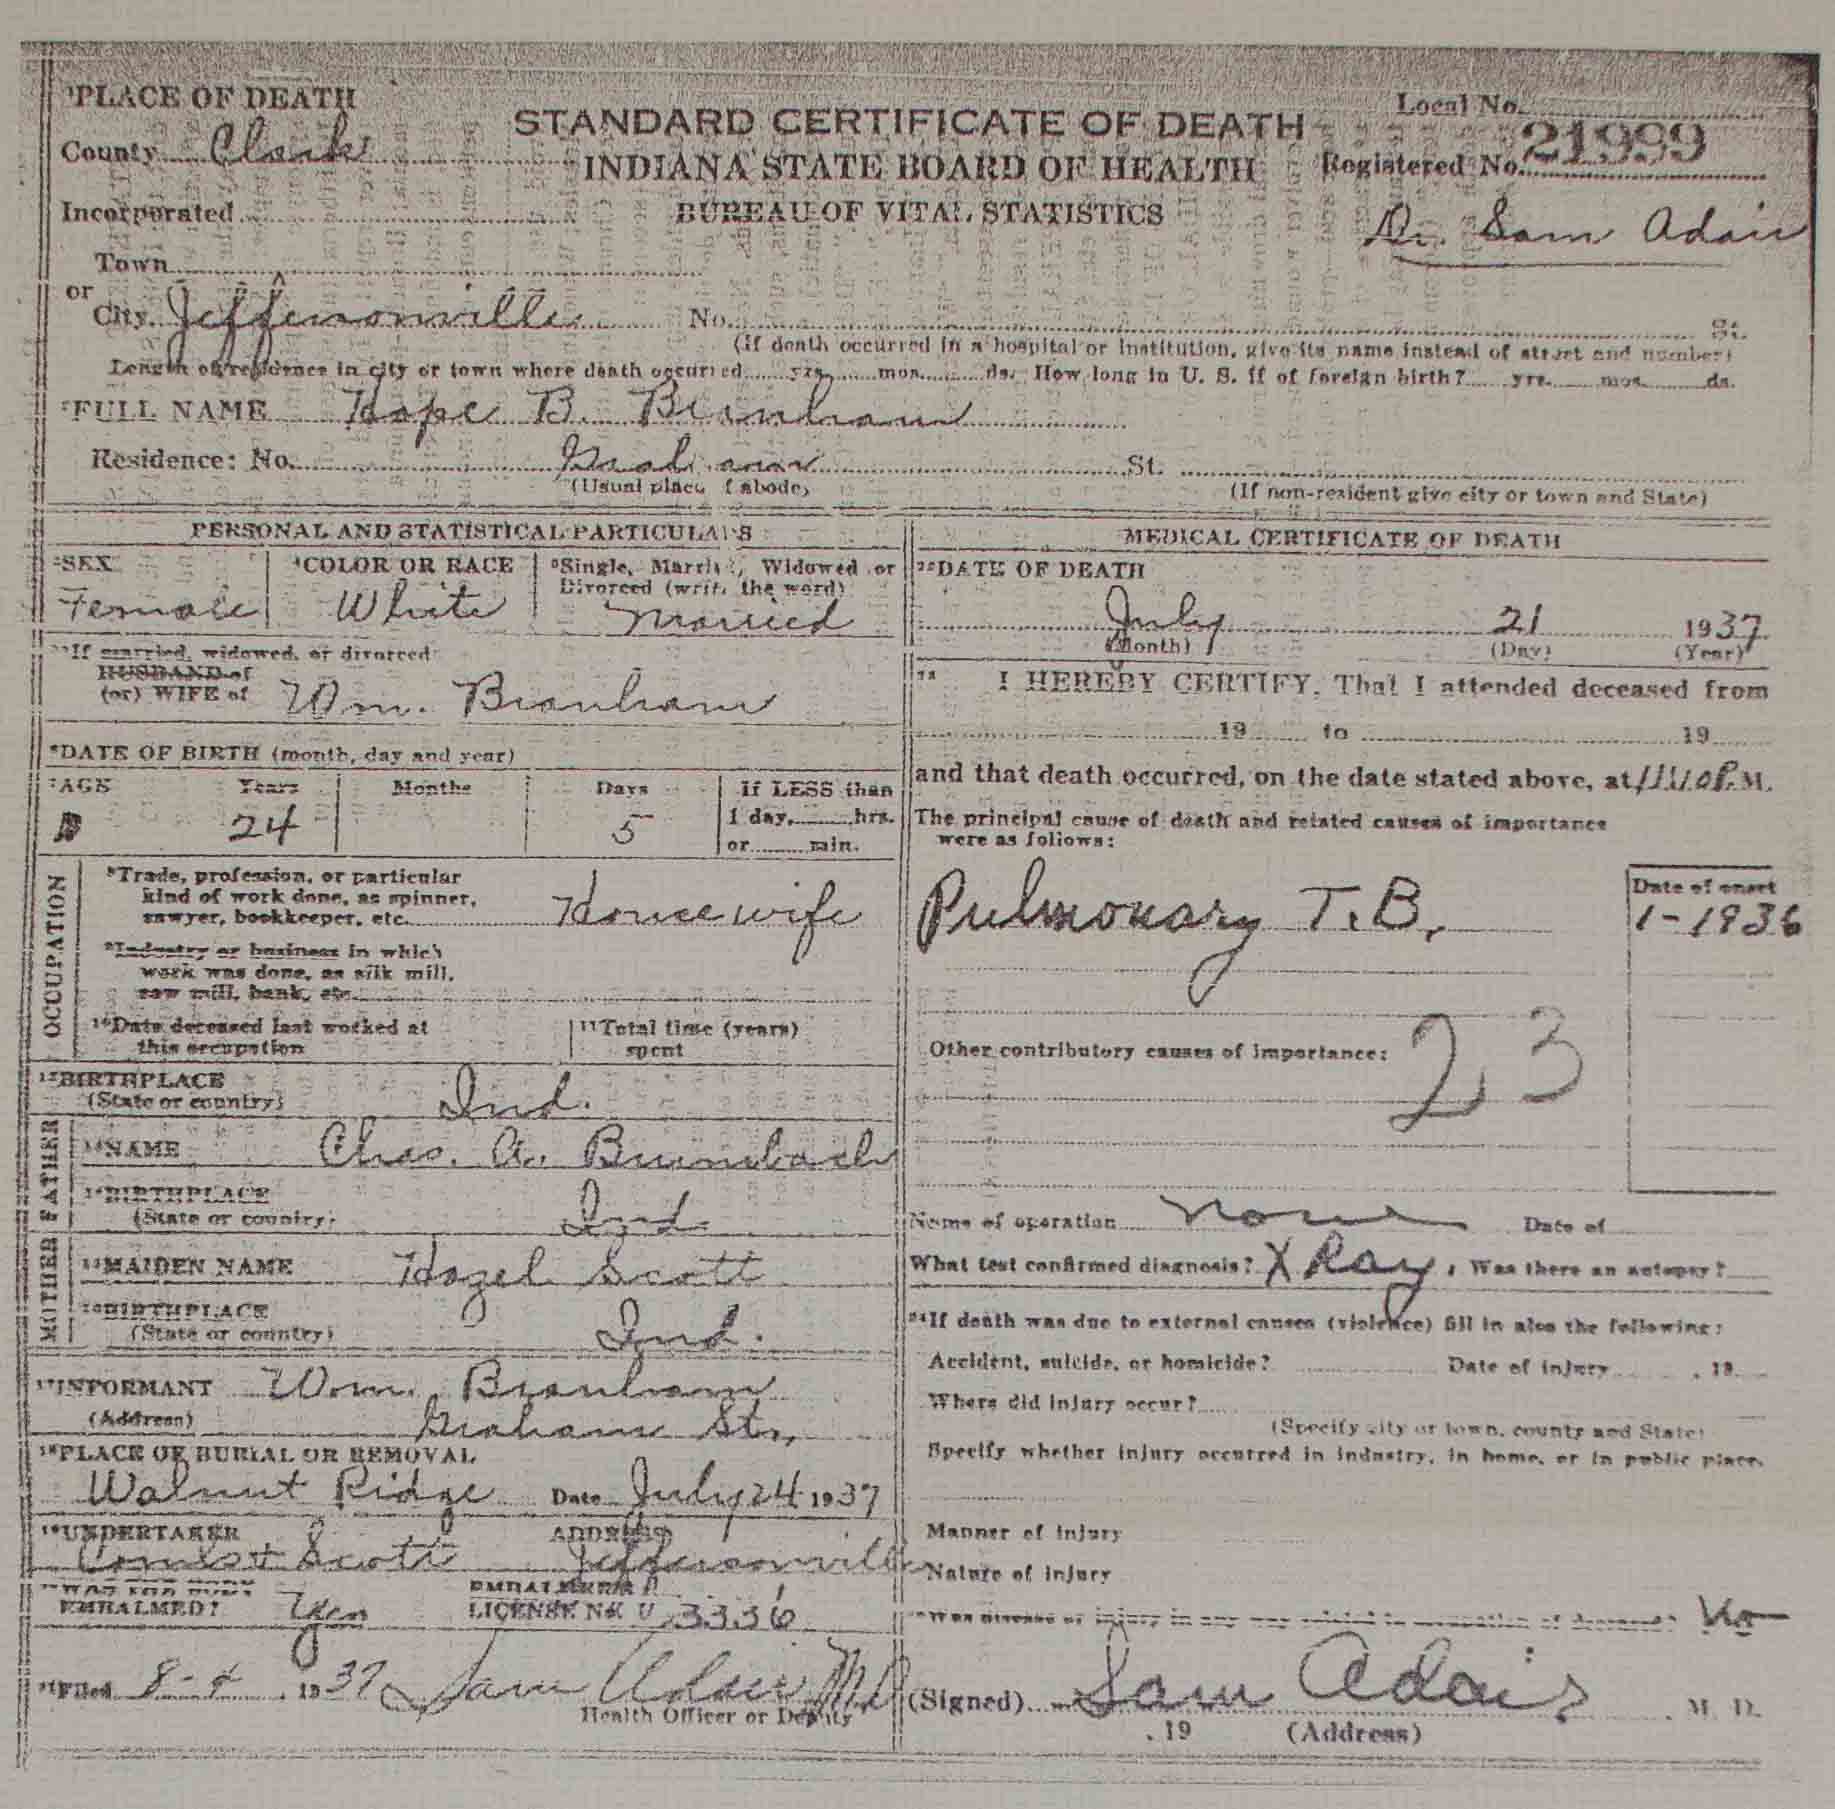 ¹PLACE OF DEATH
County Clark
Incorporated
Town
or
City Jeffersonville No. St.
STANDARD CERTIFICATE OF DEATH
INDIANA STATE BOARD OF HEALTH
BUREAU OF VITAL STATISTICS
Local No.
Registered No. 21999
Dr. Sam Adair
(If death occurred in a hospital or institution, give its name instead of street and number)
Length of residence in city or town where death occurred yrs. mos. ds. How long in U. S. if of foreign birth? yrs. mos. ds.
²FULL NAME Hope B. Branham
Residence: No. Graham St.
(Usual place of abode) (If non-resident give city or town and State)
PERSONAL AND STATISTICAL PARTICULARS
³SEX Female
⁴COLOR OR RACE White
⁵Single, Married, Widowed or
Divorced (write the word)
Married
If married, widowed, or divorced
HUSBAND of
(or) WIFE of Wm. Branham
⁶DATE OF BIRTH (month, day and year)
⁷AGE Years Months Days If LESS than
24 5 1 day, hrs.
or min.
OCCUPATION
⁸Trade, profession, or particular
kind of work done, as spinner,
sawyer, bookkeeper, etc. Housewife
⁹Industry or business in which
work was done, as silk mill,
saw mill, bank, etc.
¹⁰Date deceased last worked at
this occupation
¹¹Total time (years)
spent
¹²BIRTHPLACE
(State or country) Ind.
FATHER
¹³NAME Chas. A. Brumbach
¹⁴BIRTHPLACE
(State or country) Ind.
MOTHER
¹⁵MAIDEN NAME Hazel Scott
¹⁶BIRTHPLACE
(State or country) Ind.
¹⁷INFORMANT Wm. Branham
(Address) Graham St.
¹⁸PLACE OF BURIAL OR REMOVAL
Walnut Ridge Date July 24 1937
¹⁹UNDERTAKER ADDRESS
Coombs & Scott Jeffersonville
WAS THE BODY
EMBALMED? Yes
EMBALMER'S
LICENSE No. 3336
²¹Filed 8-4, 1937 Sam Adair MD
Health Officer or Deputy
MEDICAL CERTIFICATE OF DEATH
²²DATE OF DEATH
July 21 1937
(Month) (Day) (Year)
I HEREBY CERTIFY, That I attended deceased from
19 to 19
and that death occurred, on the date stated above, at P.M.
The principal cause of death and related causes of importance
were as follows:
Pulmonary T.B.
Date of onset
1-1936
Other contributory causes of importance:
23
Name of operation none Date of
What test confirmed diagnosis? X Ray. Was there an autopsy?
²⁴If death was due to external causes (violence) fill in also the following:
Accident, suicide, or homicide? Date of injury , 19
Where did injury occur?
(Specify city or town, county and State)
Specify whether injury occurred in industry, in home, or in public place.
Manner of injury
Nature of injury
Was disease or injury in any way related to occupation of deceased? No
(Signed) Sam Adair, M. D.
, 19 (Address)